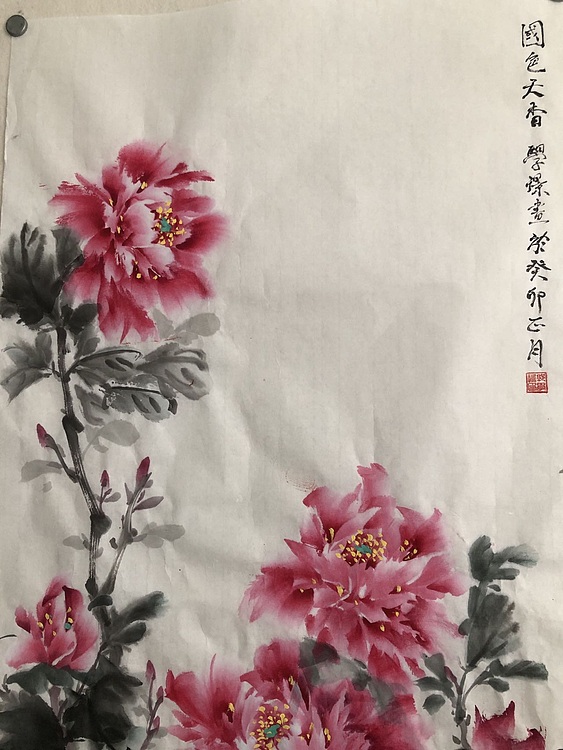 國色天香 學燦畫於癸卯正月